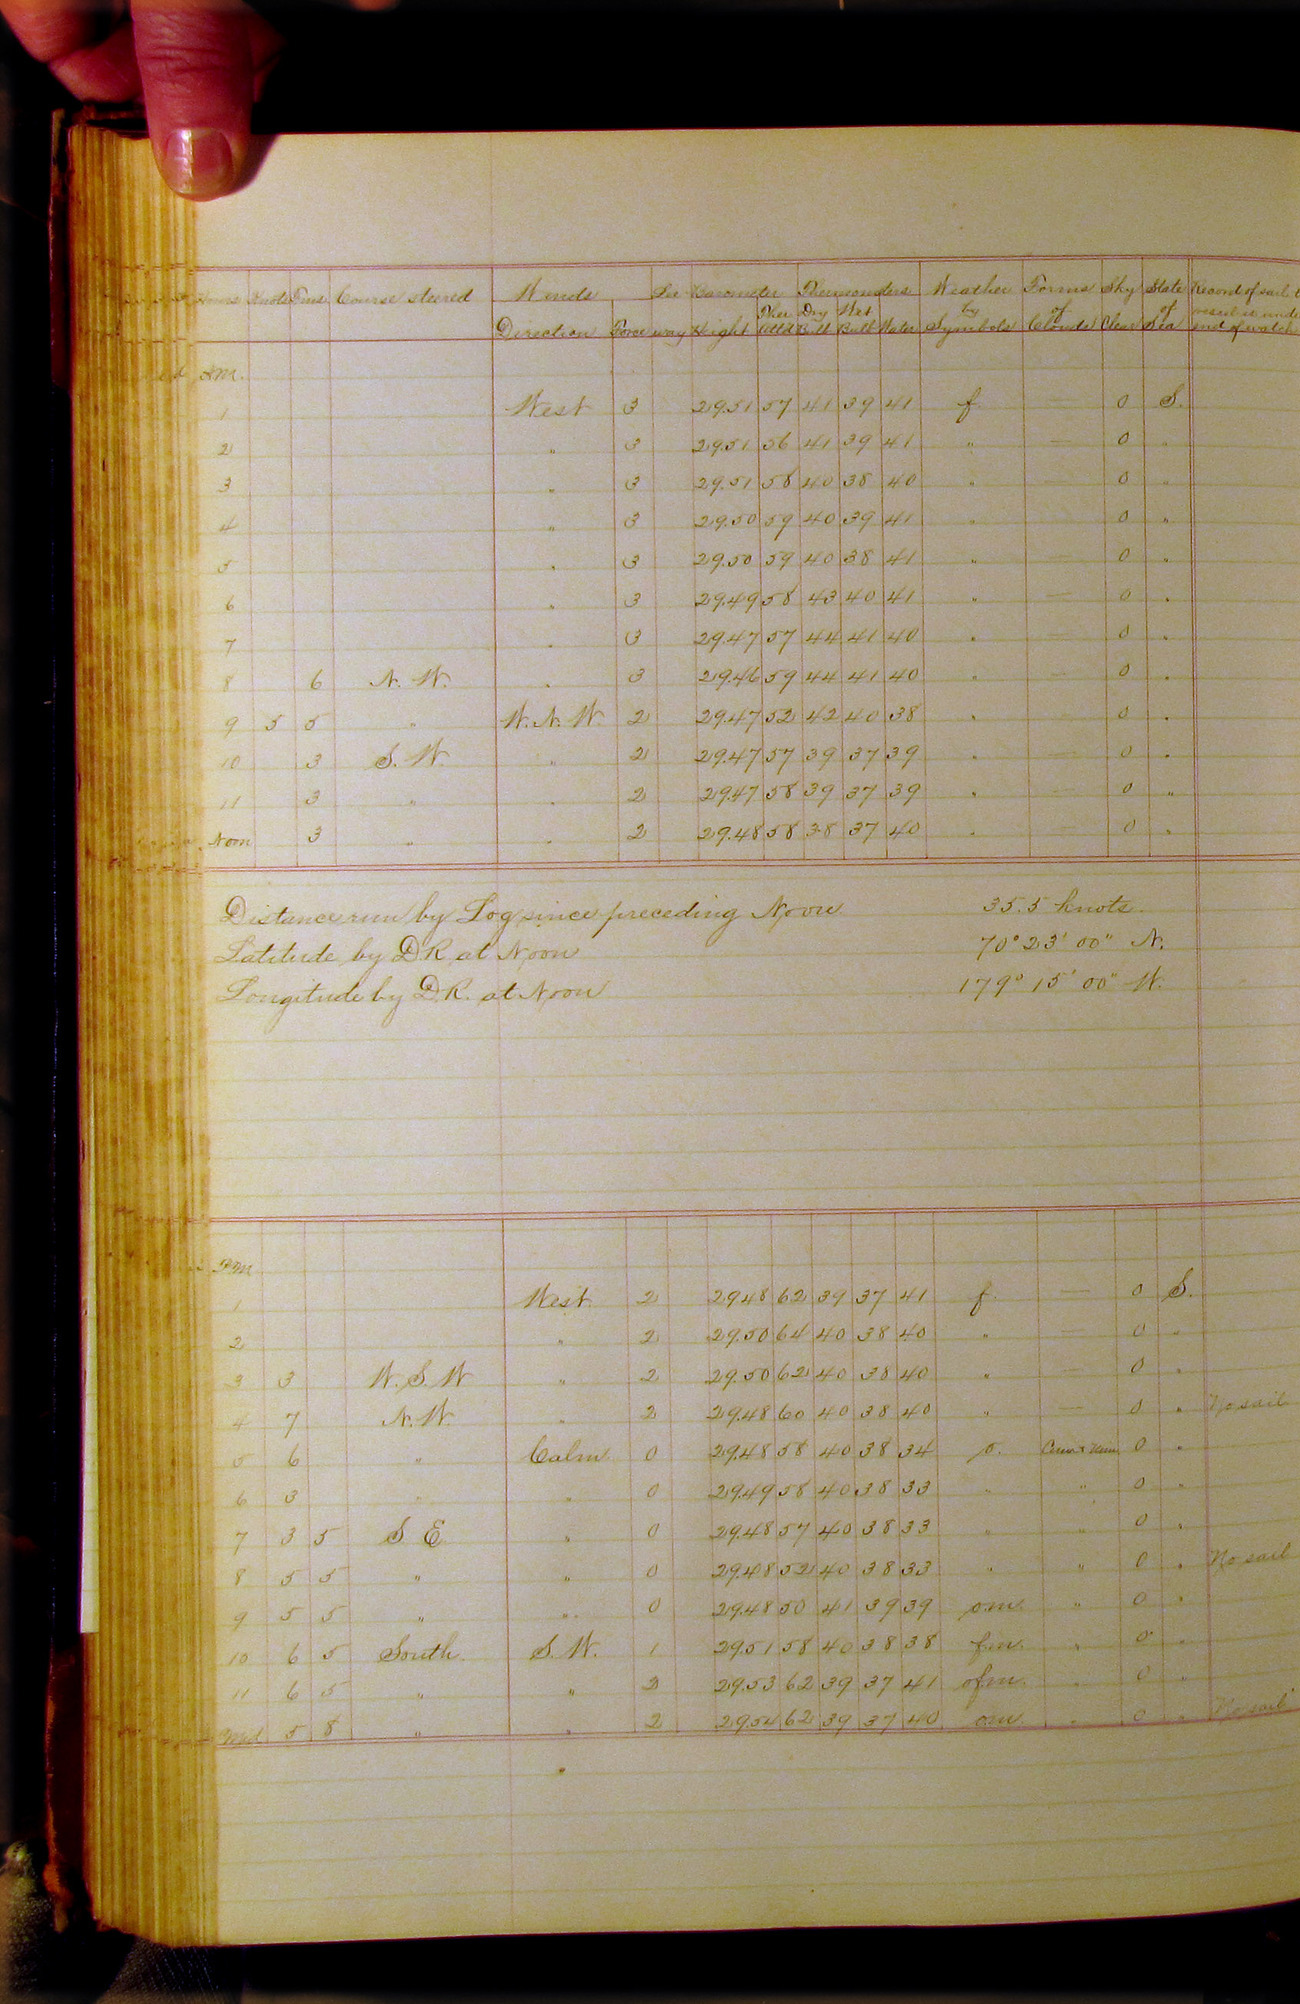 Hours Knots Fms Course steered Winds Lee Barometer Thermometers Weather Forms Sky State Record of sail
Direction Force way Height Ther Attd Dry Bulb Wet Bulb Water by Symbols of Clouds Clear of Sea vessel is under end of watch
A.M.
1 West 3 29.51 57 41 39 41 f. — 0 S.
2 " 3 29.51 56 41 39 41 " — 0 "
3 " 3 29.51 58 40 38 40 " — 0 "
4 " 3 29.50 59 40 39 41 " — 0 "
5 " 3 29.50 59 40 38 41 " — 0 "
6 " 3 29.49 58 43 40 41 " — 0 "
7 " 3 29.47 57 44 41 40 " — 0 "
8 6 N. W. " 3 29.46 59 44 41 40 " — 0 "
9 5 5 " W. N. W 2 29.47 52 42 40 38 " — 0 "
10 3 S. W. " 2 29.47 57 39 37 39 " — 0 "
11 3 " " 2 29.47 58 39 37 39 " — 0 "
Noon 3 " " 2 29.48 58 38 37 40 " — 0 "
Distance run by Log since preceding Noon 35.5 knots.
Latitude by D R at Noon 70° 23' 00" N.
Longitude by D.R. at Noon 179° 15' 00" W.
P.M.
1 West 2 29.48 62 39 37 41 f. — 0 S.
2 " 2 29.50 64 40 38 40 " — 0 "
3 3 W. S. W " 2 29.50 62 40 38 40 " — 0 "
4 7 N. W. " 2 29.48 60 40 38 40 " — 0 " No sail
5 6 " Calm 0 29.48 58 40 38 34 o. 0 "
6 3 " " 0 29.49 58 40 38 33 " " 0 "
7 3 5 S E " 0 29.48 57 40 38 33 " " 0 "
8 5 5 " " 0 29.48 52 40 38 33 " " 0 " No sail
9 5 5 " " 0 29.48 50 41 39 39 o.m. " 0 "
10 6 5 South. S. W. 1 29.51 58 40 38 38 f.m. " 0 "
11 6 5 " " 2 29.53 62 39 37 41 ofm. " 0 "
Mid 5 8 " " 2 29.54 62 39 37 40 om. " 0 " No sail